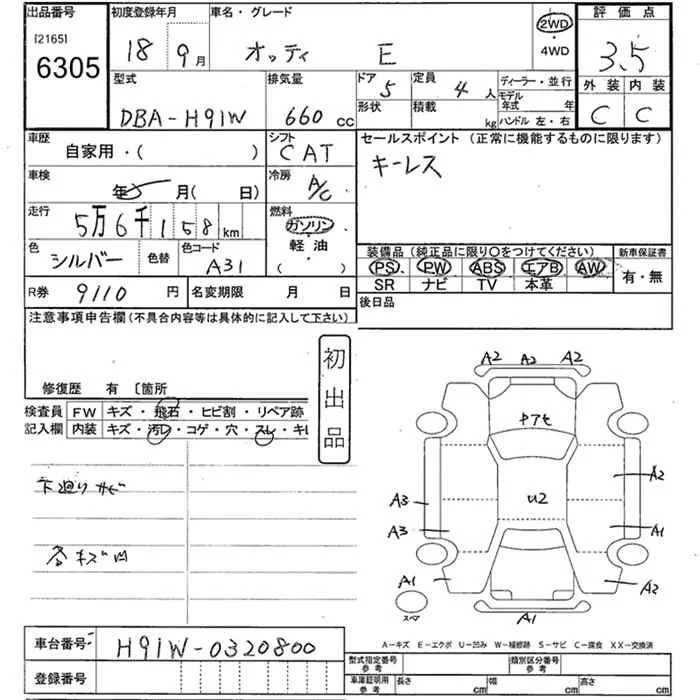 出品番号 初度登録年月 車名・グレード 評価点
[2165] 6305 18 9月 オッティ E 2WD ・ 4WD 3.5
外装 内装
C C
型式 排気量 ドア 5 定員 4人 ディーラー・並行
DBA-H91W 660cc 形状 積載 kg モデル年式 年 ハンドル 左・右
車歴 シフト セールスポイント (正常に機能するものに限ります)
自家用・( ) CAT キーレス
車検 冷房
年 月(日) A/C
走行 燃料
5万6千158km ガソリン
軽油
( )
色 シルバー 色替 色コード A31
装備品 (純正品に限り〇をつけてください) 新車保証書
PS. PW ABS エアB AW 有・無
SR ナビ TV 本革
R券 9110円 名変期限 月 日 後日品
注意事項申告欄(不具合内容等は具体的に記入して下さい)
初出品
修復歴 有 〔箇所
検査員 FW キズ・飛石・ヒビ割・リペア跡
記入欄 内装 キズ・汚レ・コゲ・穴・スレ・キレ
下廻りサビ
各キズ凹
A2 A2 A2
Pアセ
A2
A3 U2
A3 A1
A1 A2
スペア A1
車台番号 H91W-0320800
A-キズ E-エクボ U-凹み W-補修跡 S-サビ C-腐食 XX-交換済
登録番号
型式指定番号 参考 類別区分番号 参考
車庫証明用 参考 長さ cm 幅 cm 高さ cm